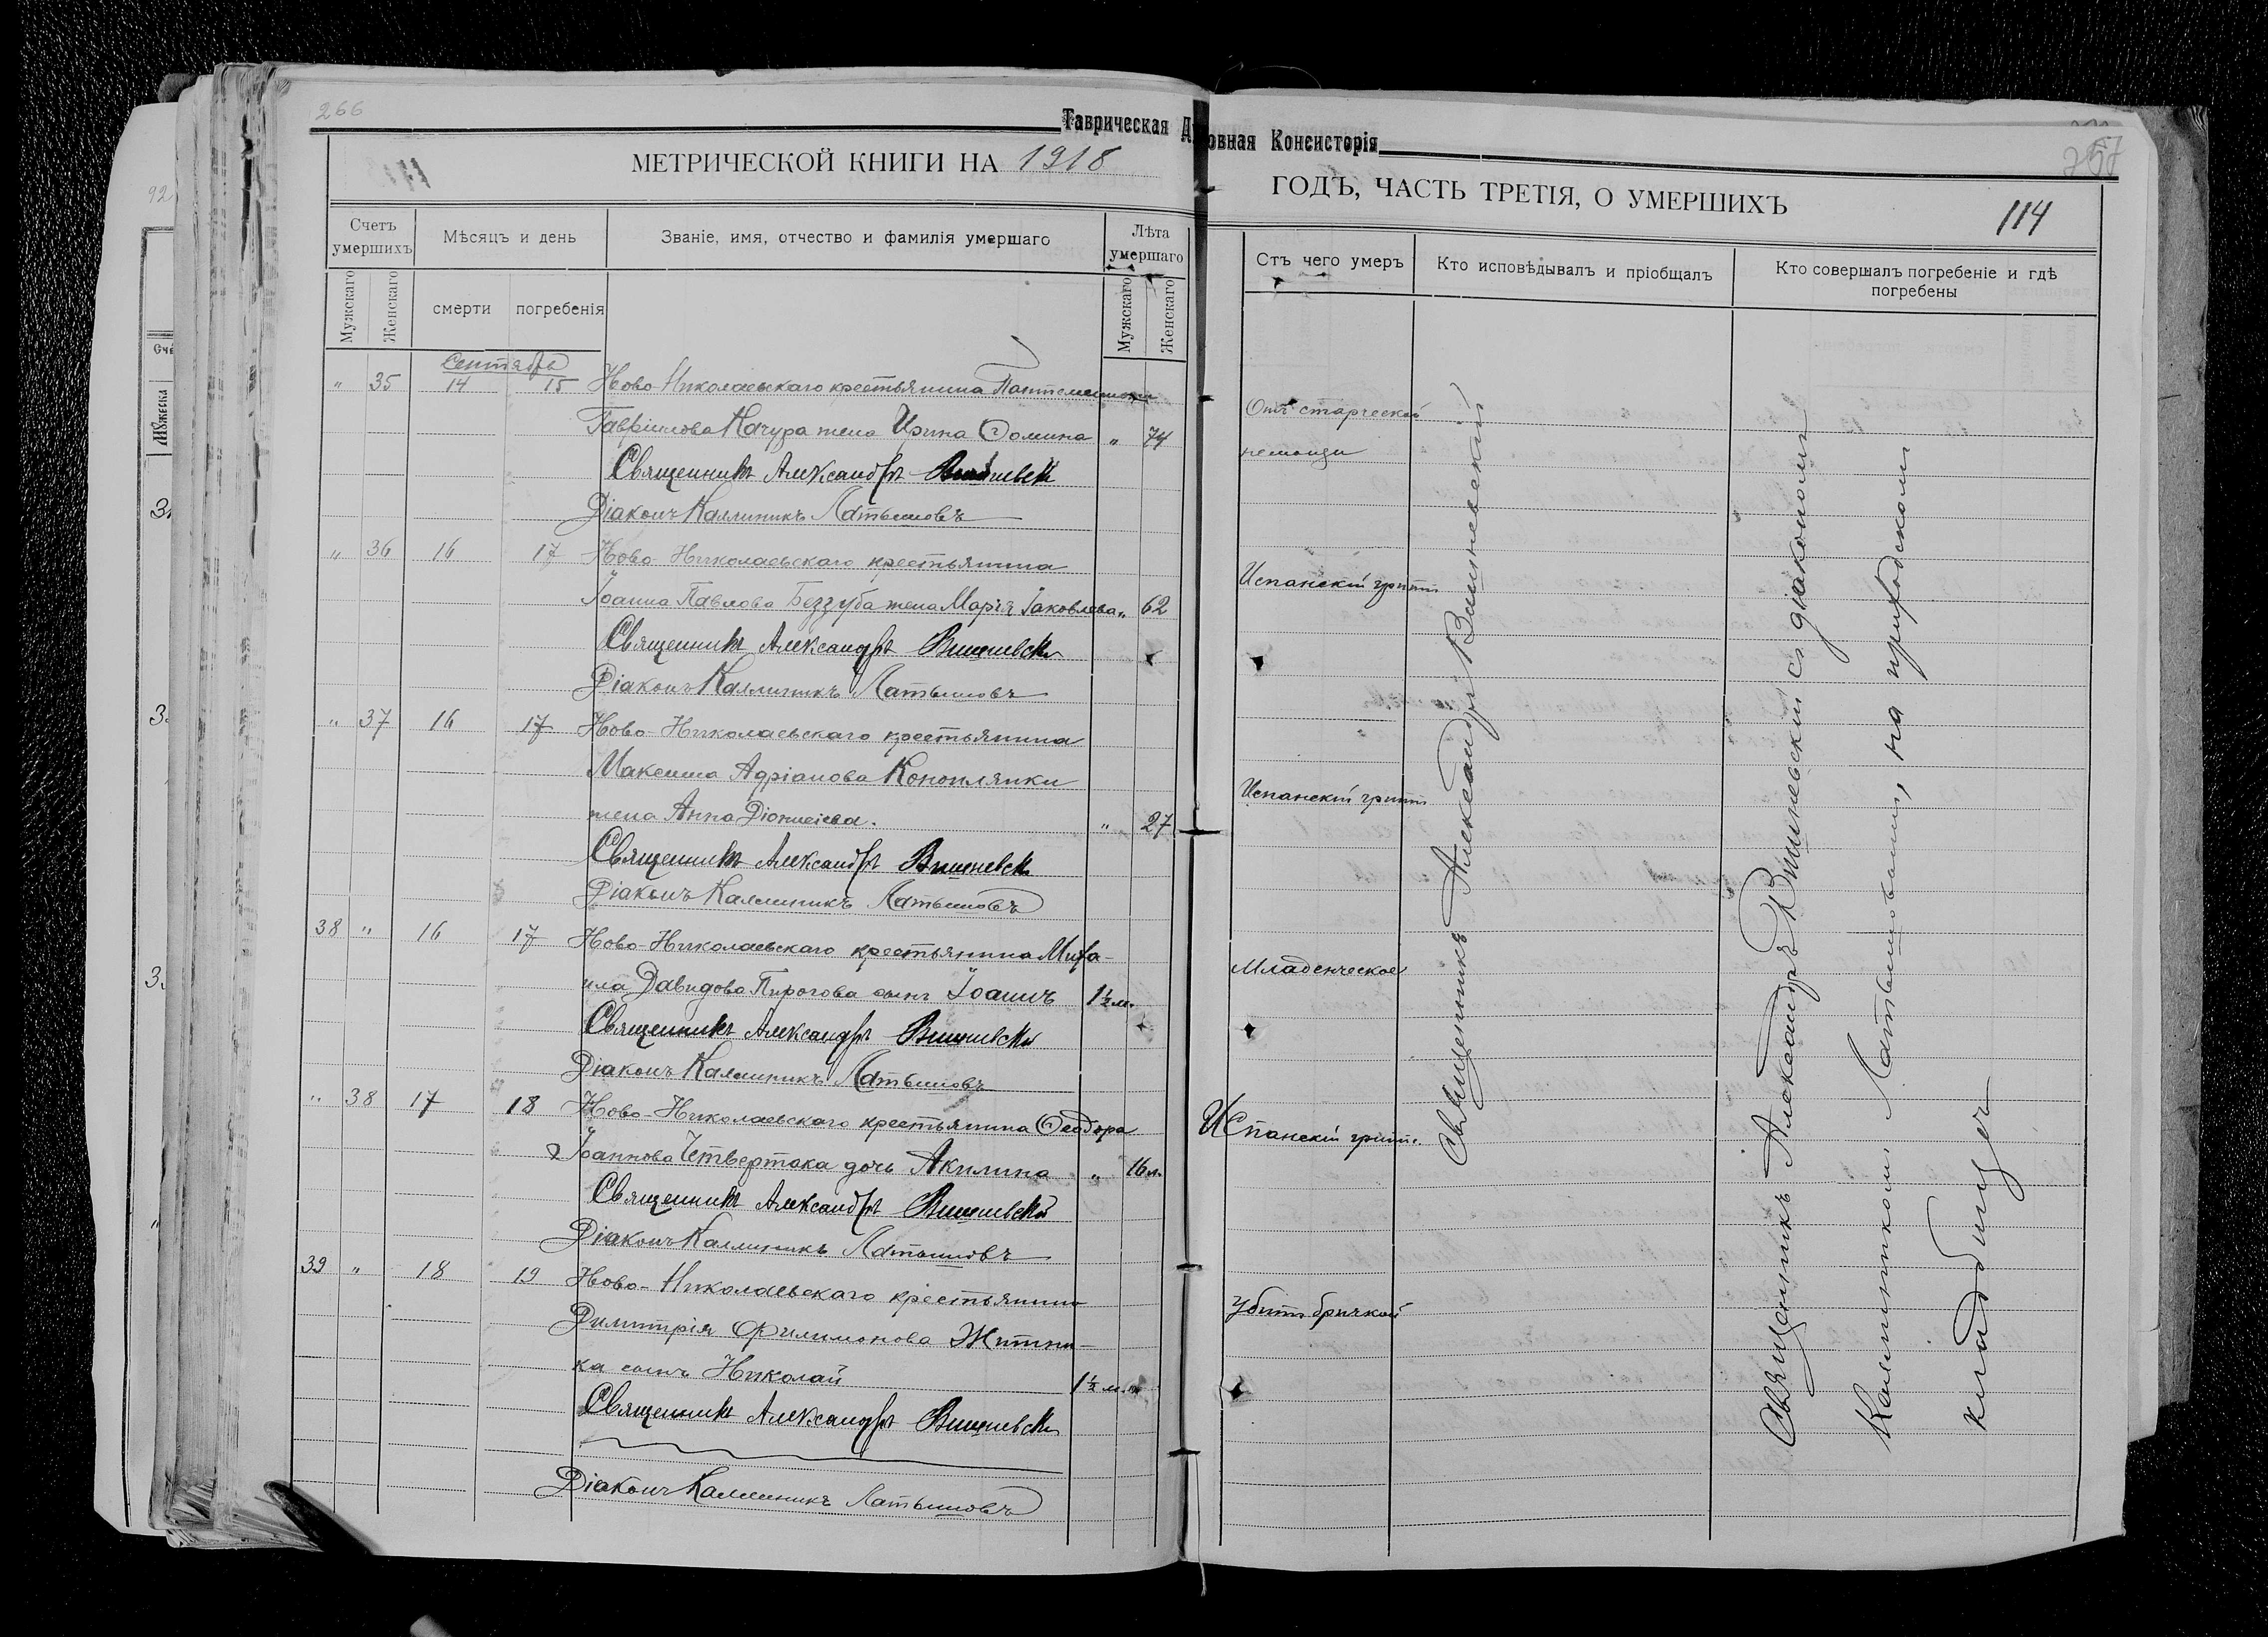 266
Таврическая Духовная Консисторія
МЕТРИЧЕСКОЙ КНИГИ НА 1918
ГОДЪ, ЧАСТЬ ТРЕТІЯ, О УМЕРШИХЪ
114
Счетъ умершихъ
Мѣсяцъ и день
Званіе, имя, отчество и фамилія умершаго
Лѣта умершаго
Отъ чего умеръ
Кто исповѣдывалъ и пріобщалъ
Кто совершалъ погребеніе и гдѣ погребены
Мужскаго
Женскаго
смерти
погребенія
Мужскаго
Женскаго
Сентябрь
" 35 14 15 Ново-Николаевскаго крестьянина Пантелеимона
Гаврилова Качура жена Ирина Ѳомина " 74
Отъ старческой
немощи
Священникъ Александръ Вишневскій
Діаконъ Каллиникъ Латышовъ
" 36 16 17 Ново-Николаевскаго крестьянина
Іоанна Павлова Беззуба жена Марія Іаковлева " 62
Испанскій гриппъ
Священникъ Александръ Вишневскій
Діаконъ Каллиникъ Латышовъ
" 37 16 17 Ново-Николаевскаго крестьянина
Максима Адріанова Коноплянки
жена Анна Діонисіева. " 27
Испанскій гриппъ
Священникъ Александръ Вишневскій
Діаконъ Каллиникъ Латышовъ
38 " 16 17 Ново-Николаевскаго крестьянина Миха-
ила Давидова Пирогова сынъ Іоаннъ 1½ м.
Младенческое
Священникъ Александръ Вишневскій
Діаконъ Каллиникъ Латышовъ
" 38 17 18 Ново-Николаевскаго крестьянина Ѳеодора
Іоаннова Четвертака дочь Акилина " 16 л.
Испанскій гриппъ
Священникъ Александръ Вишневскій
Діаконъ Каллиникъ Латышовъ
39 " 18 19 Ново-Николаевскаго крестьянина
Димитрія Филимонова Житни-
ка сынъ Николай 1½
Убитъ бричкой
Священникъ Александръ Вишневскій
Діаконъ Каллиникъ Латышовъ
Священникъ Александръ Вишневскій
Священникъ Александръ Вишневскій съ діакономъ
Каллиникомъ Латышовымъ, на приходскомъ
кладбищѣ